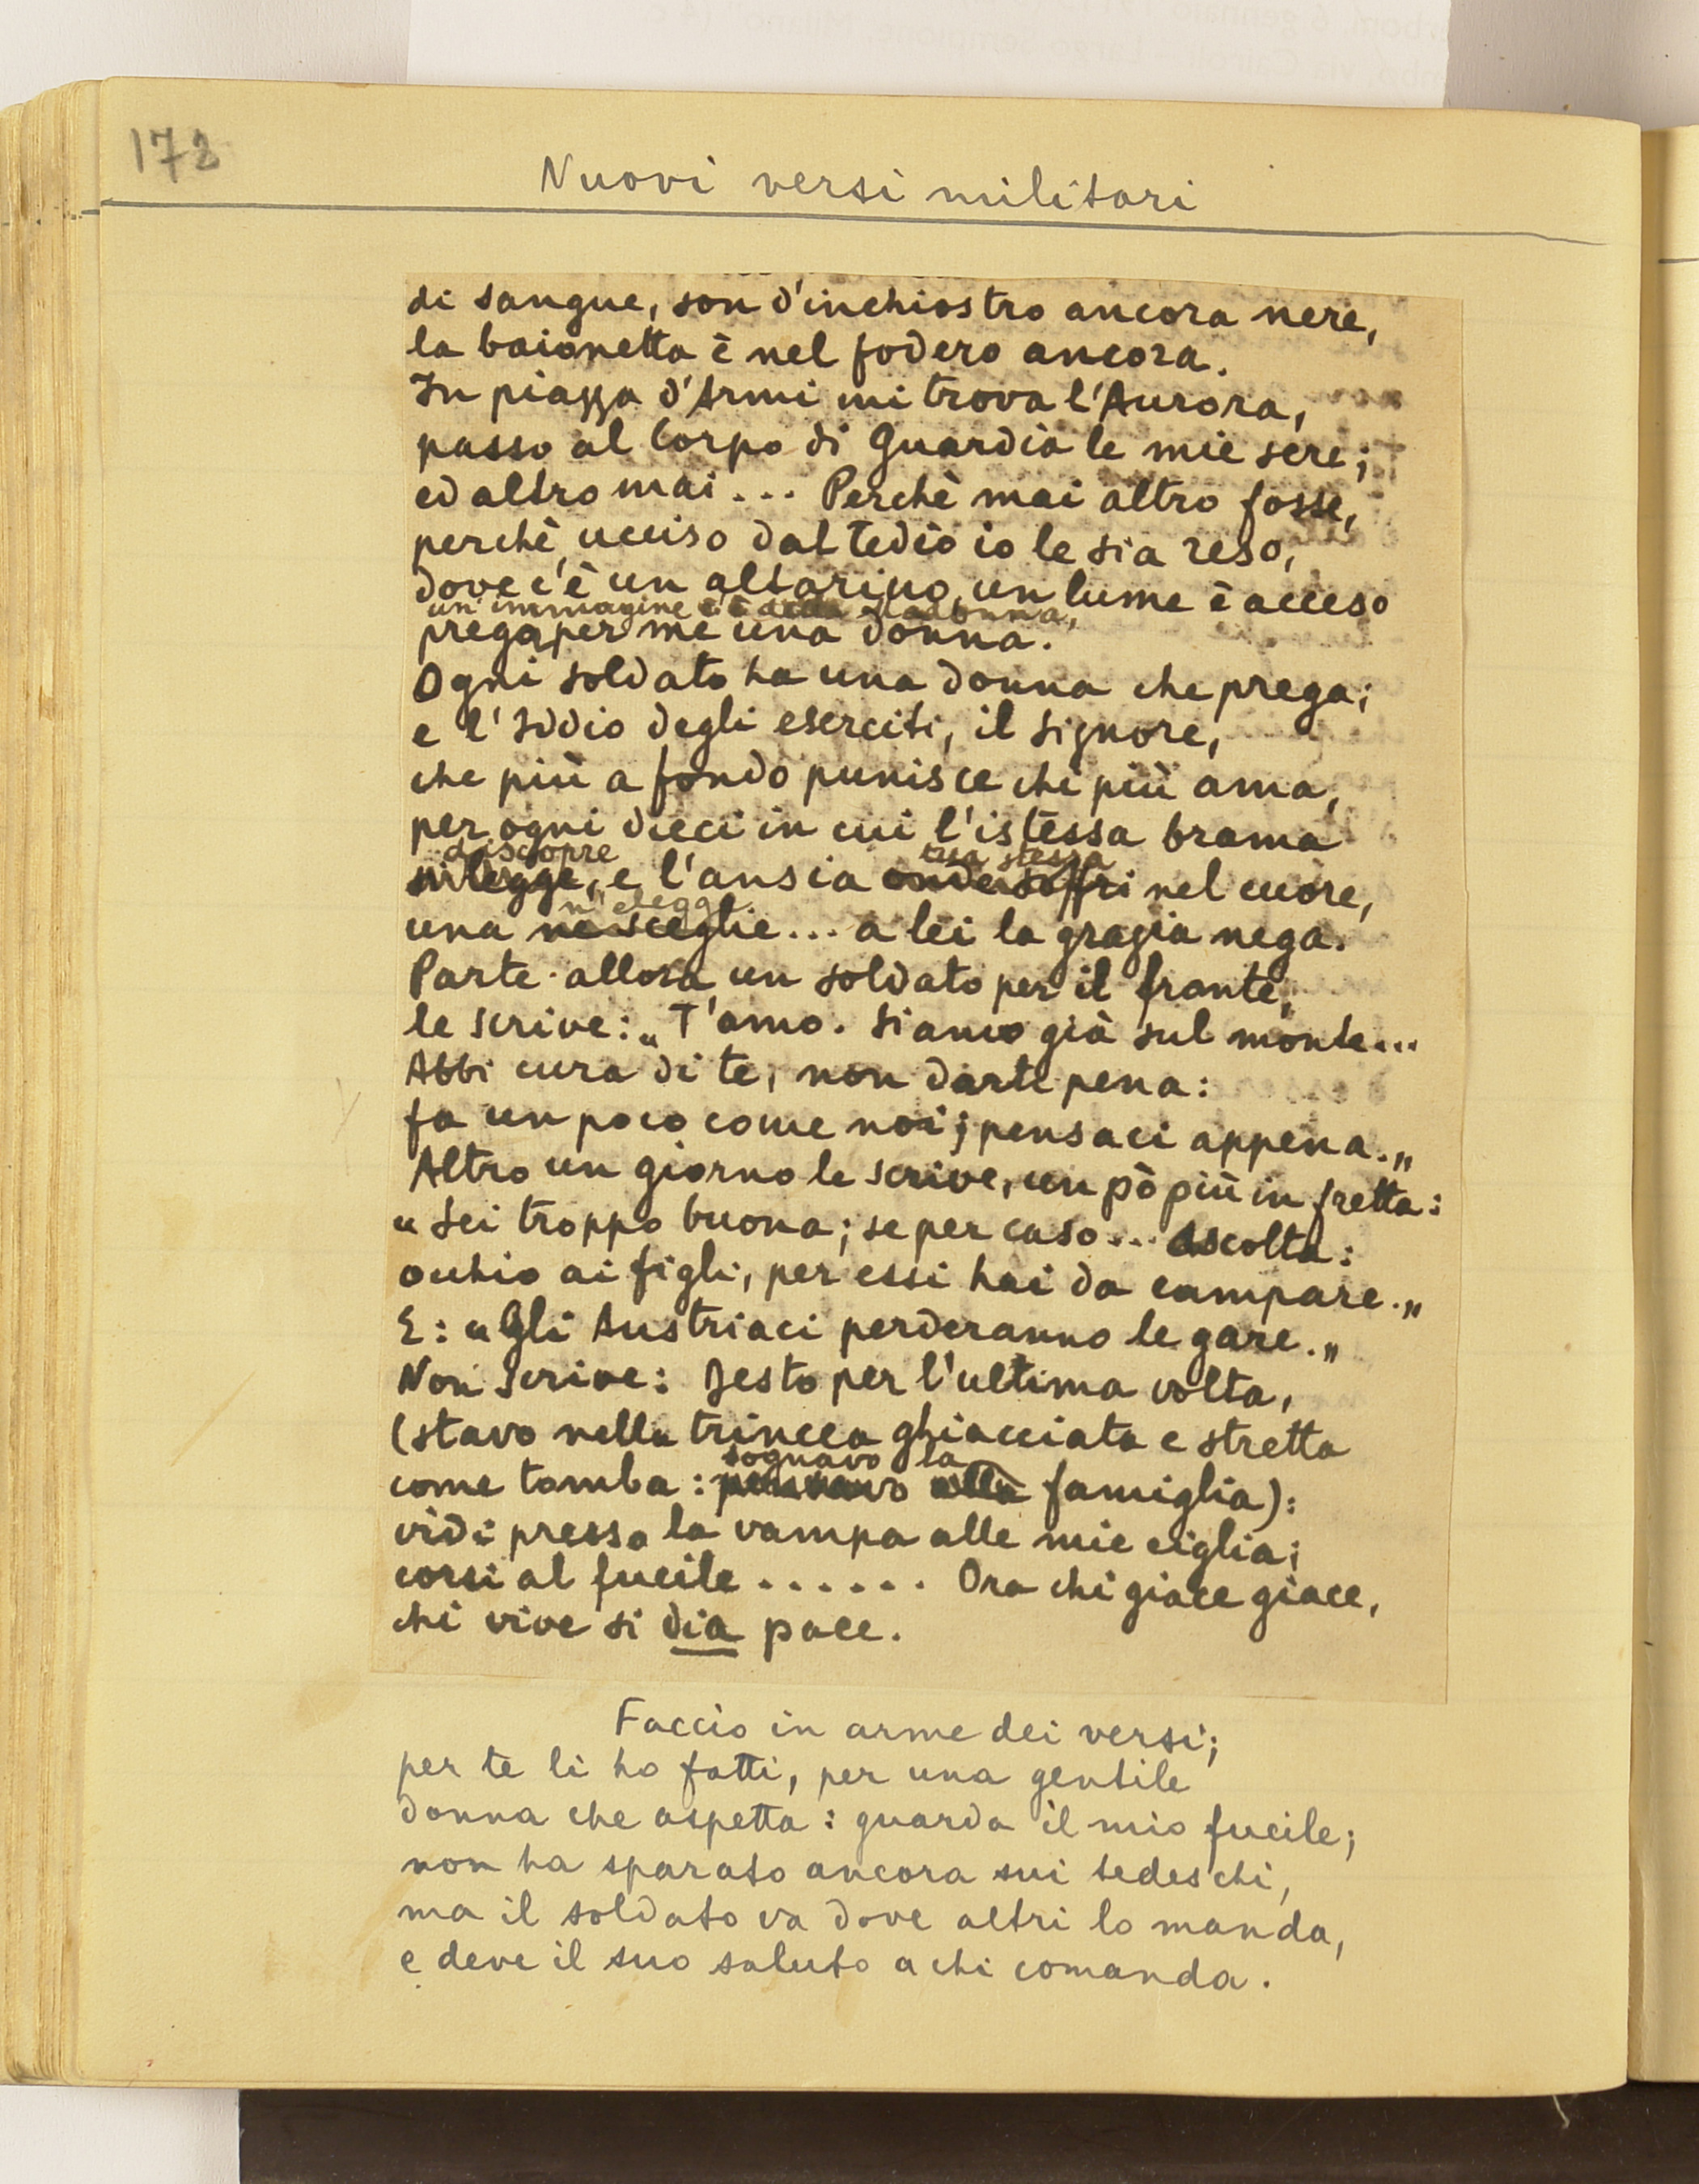 172
Nuovi versi militari
di sangue, son d'inchiostro ancora nere,
la baionetta è nel fodero ancora.
In piazza d'Armi mi trova l'Aurora,
passo al Corpo di Guardia le mie sere;
ed altro mai... Perchè mai altro fosse,
perchè ucciso dal tedio io le sia reso,
dove c'è un altarino, un lume è acceso
un'immagine c'è della Madonna,
prega per me una donna.
Ogni soldato ha una donna che prega;
e l'Iddio degli eserciti, il Signore,
che più a fondo punisce chi più ama,
per ogni dieci in cui l'istessa brama
discopre tua stessa
si legge, e l'ansia onde soffri nel cuore,
n'elegge
una ne sceglie... a lei la grazia nega.
Parte allora un soldato per il fronte,
le scrive: „T'amo. Siamo già sul monte...
Abbi cura di te, non darti pena:
fa un poco come noi; pensaci appena.„
Altro un giorno le scrive, un pò più in fretta:
„Sei troppo buona; se per caso... Ascolta:
occhio ai figli, per essi hai da campare.„
E: „Gli Austriaci perderanno le gare.„
Non scrive: Desto per l'ultima volta,
(stavo nella trincea ghiacciata e stretta
sognavo la
come tomba: pensavo alla famiglia):
vidi presso la vampa alle mie ciglia;
corsi al fucile...... Ora chi giace giace,
chi vive si dia pace.
Faccio in arme dei versi;
per te li ho fatti, per una gentile
donna che aspetta: guarda il mio fucile;
non ha sparato ancora sui tedeschi,
ma il soldato va dove altri lo manda,
e deve il suo saluto a chi comanda.